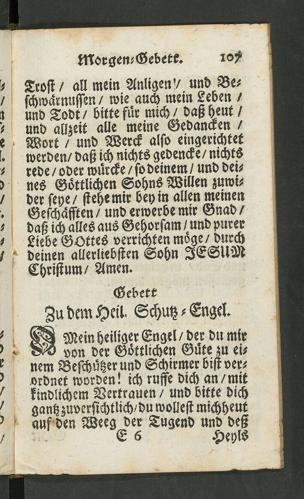 Morgen-Gebett. 107
Trost / all mein Anligen / und Be-
schwärnussen / wie auch mein Leben /
und Todt / bitte für mich / daß heut /
und allzeit alle meine Gedancken /
Wort / und Werck also eingerichtet
werden / daß ich nichts gedencke / nichts
rede / oder würcke / so deinem / und dei-
nes Göttlichen Sohns Willen zuwi-
der seye / stehe mir bey in allen meinen
Geschäfften / und erwerbe mir Gnad /
daß ich alles aus Gehorsam / und purer
Liebe GOttes verrichten möge / durch
deinen allerliebsten Sohn JESUM
Christum / Amen.
Gebett
Zu dem Heil. Schutz-Engel.
O Mein heiliger Engel / der du mir
von der Göttlichen Güte zu ei-
nem Beschützer und Schirmer bist ver-
ordnet worden! ich ruffe dich an / mit
kindlichem Vertrauen / und bitte dich
gantz zuversichtlich / du wollest mich heut
auf den Weeg der Tugend und deß
E 6 Heyls